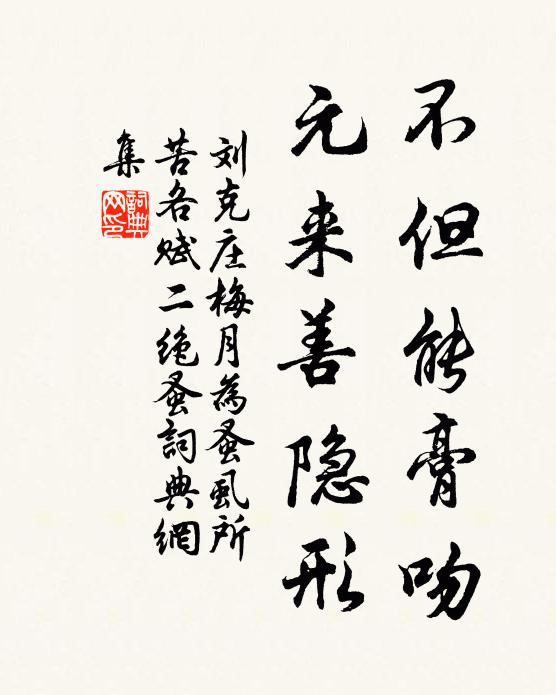 不但能膏吻
元来善隐形
刘克庄梅月為蚤虱所
苦各赋二绝蚤詞典網
集
詞典网印